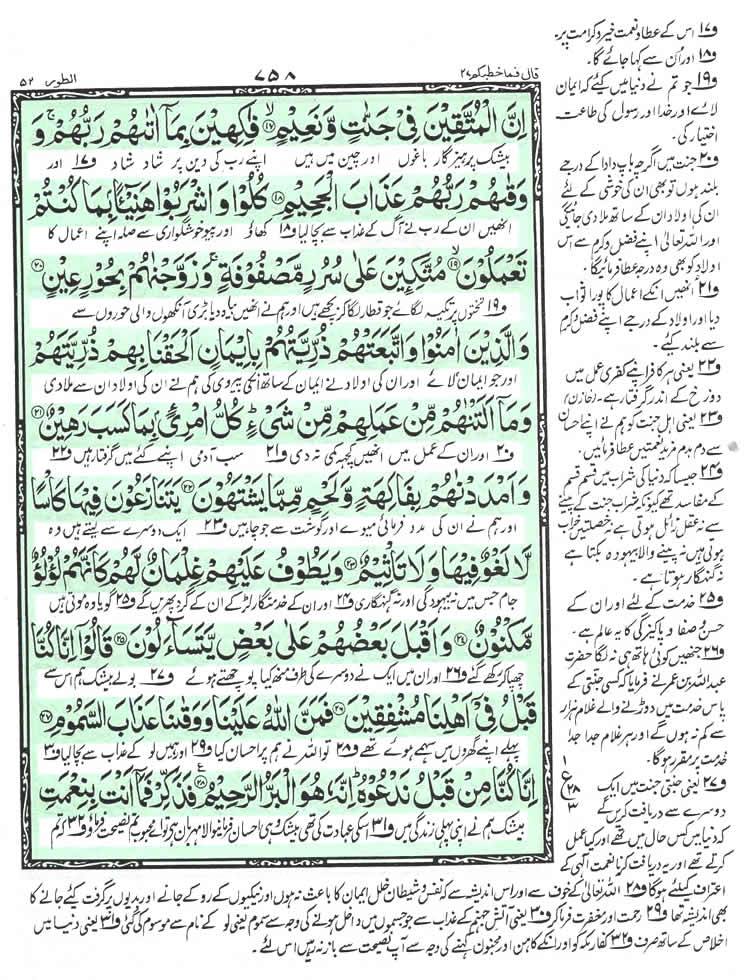 قال فما خطبكم ٢٧
٧٥٨
الطور ٥٢
اِنَّ الْمُتَّقِيْنَ فِيْ جَنّٰتٍ وَّنَعِيْمٍ ۙ۱۷ فٰكِهِيْنَ بِمَاۤ اٰتٰىهُمْ رَبُّهُمْ ۚ وَ
بیشک پرہیزگار باغوں اور چین میں ہیں اپنے رب کی دین پر شاد شاد و۱۷ اور
وَقٰىهُمْ رَبُّهُمْ عَذَابَ الْجَحِيْمِ ۱۸ كُلُوْا وَ اشْرَبُوْا هَنِيْٓـًٔۢا بِمَا كُنْتُمْ
انھیں ان کے رب نے آگ کے عذاب سے بچالیا و۱۸ کھاؤ اور پیو خوشگواری سے صلہ اپنے اعمال کا
تَعْمَلُوْنَ ۙ۱۹ مُتَّكِـِٕيْنَ عَلٰى سُرُرٍ مَّصْفُوْفَةٍ ۚ وَ زَوَّجْنٰهُمْ بِحُوْرٍ عِيْنٍ ۲۰
و۱۹ تختوں پر تکیہ لگائے جو قطار لگا کر بچھے ہیں اور ہم نے انھیں بیاہ دیا بڑی آنکھوں والی حوروں سے
وَ الَّذِيْنَ اٰمَنُوْا وَ اتَّبَعَتْهُمْ ذُرِّيَّتُهُمْ بِاِيْمَانٍ اَلْحَقْنَا بِهِمْ ذُرِّيَّتَهُمْ
اور جو ایمان لائے اور ان کی اولاد نے ایمان کے ساتھ انکی پیروی کی ہم نے ان کی اولاد ان سے ملادی
وَ مَاۤ اَلَتْنٰهُمْ مِّنْ عَمَلِهِمْ مِّنْ شَيْءٍ ؕ كُلُّ امْرِئٍۭ بِمَا كَسَبَ رَهِيْنٌ ۲۱
و۲۰ اور ان کے عمل میں انھیں کچھ کمی نہ دی و۲۱ سب آدمی اپنے کئے میں گرفتار ہیں و۲۲
وَ اَمْدَدْنٰهُمْ بِفَاكِهَةٍ وَّ لَحْمٍ مِّمَّا يَشْتَهُوْنَ ۲۲ يَتَنَازَعُوْنَ فِيْهَا كَاْسًا
اور ہم نے ان کی مدد فرمائی میوے اور گوشت سے جو چاہیں و۲۳ ایک دوسرے سے لیتے ہیں وہ
لَّا لَغْوٌ فِيْهَا وَ لَا تَاْثِيْمٌ ۲۳ وَ يَطُوْفُ عَلَيْهِمْ غِلْمَانٌ لَّهُمْ كَاَنَّهُمْ لُؤْلُؤٌ
جام جس میں نہ بیہودگی اور نہ گنہگاری و۲۴ اور ان کے خدمتگار لڑکے ان کے گرد پھریں گے و۲۵ گویا وہ موتی ہیں
مَّكْنُوْنٌ ۲۴ وَ اَقْبَلَ بَعْضُهُمْ عَلٰى بَعْضٍ يَّتَسَآءَلُوْنَ ۲۵ قَالُوْۤا اِنَّا كُنَّا
چھپا کر رکھے گئے و۲۶ اور ان میں ایک نے دوسرے کی طرف منھ کیا پوچھتے ہوئے و۲۷ بولے بیشک ہم اس سے
قَبْلُ فِيْۤ اَهْلِنَا مُشْفِقِيْنَ ۲۶ فَمَنَّ اللّٰهُ عَلَيْنَا وَ وَقٰىنَا عَذَابَ السَّمُوْمِ ۲۷
پہلے اپنے گھروں میں سہمے ہوئے تھے و۲۸ تو اللہ نے ہم پر احسان کیا و۲۹ اور ہمیں لو کے عذاب سے بچالیا و۳۰
اِنَّا كُنَّا مِنْ قَبْلُ نَدْعُوْهُ ؕ اِنَّهٗ هُوَ الْبَرُّ الرَّحِيْمُ ۲۸ ع فَذَكِّرْ فَمَاۤ اَنْتَ بِنِعْمَتِ
بیشک ہم نے اپنی پہلی زندگی میں و۳۱ اسکی عبادت کی تھی بیشک وہی احسان فرمانیوالا مہربان ہے تو اے محبوب تم نصیحت فرماؤ و۳۲ کہ تم
و۱۷ اس کے عطا و نعمت خیر و کرامت پر۔
و۱۸ اور ان سے کہا جائے گا۔
و۱۹ جو تم نے دنیا میں کیئے کہ ایمان
لائے اور خدا اور رسول کی طاعت
اختیار کی۔
و۲۰ جنت میں اگرچہ باپ دادا کے درجے
بلند ہوں تو بھی ان کی خوشی کے لئے
ان کی اولاد ان کے ساتھ ملا دی جائیگی
اور اللہ تعالیٰ اپنے فضل و کرم سے اس
اولاد کو بھی وہ درجہ عطا فرمائیگا۔
و۲۱ انھیں انکے اعمال کا پورا ثواب
دیا اور اولاد کے درجے اپنے فضل و کرم
سے بلند کیئے۔
و۲۲ یعنی ہر کافر اپنے کفری عمل میں
دوزخ کے اندر گرفتار ہے۔ (خازن)
و۲۳ یعنی اہل جنت کو ہم نے اپنے احسان
سے دم بدم مزید نعمتیں عطا فرمائیں۔
و۲۴ جیسا کہ دنیا کی شراب میں قسم قسم
کے مفاسد تھے کیونکہ شراب جنت کے پینے
سے نہ عقل زائل ہوتی ہے نہ خصلتیں خراب
ہوتی ہیں نہ پینے والا بیہودہ بکتا ہے
نہ گنہگار ہوتا ہے۔
و۲۵ خدمت کے لئے اور ان کے
حسن و صفا و پاکیزگی کا یہ عالم ہے۔
و۲۶ جنھیں کوئی ہاتھ ہی نہ لگا حضرت
عبداللہ بن عمر نے فرمایا کہ کسی جنتی کے
پاس خدمت میں دوڑنے والے غلام ہزار
سے کم نہ ہوں گے اور ہر غلام جدا جدا
خدمت پر مقرر ہوگا۔
۱
ع
۲۸
۳
و۲۷ یعنی جنتی جنت میں ایک
دوسرے سے دریافت کریں گے
کہ دنیا میں کس حال میں تھے اور کیا عمل
کرتے تھے اور یہ دریافت کرنا نعمت الٰہی کے
اعتراف کیلئے ہوگا و۲۸ اللہ تعالیٰ کے خوف سے اور اس اندیشہ سے کہ نفس و شیطان خلل ایمان کا باعث نہ ہوں اور نیکیوں کے روکے جانے اور بدیوں پر گرفت کیئے جانے کا
بھی اندیشہ تھا و۲۹ رحمت اور مغفرت فرما کر و۳۰ یعنی آتش جہنم کے عذاب سے جو جسموں میں داخل ہونے کی وجہ سے سموم یعنی لو کے نام سے موسوم کی گئی و۳۱ یعنی دنیا میں
اخلاص کے ساتھ صرف و۳۲ کفار مکہ کو اور انکے کاہن اور مجنون کہنے کی وجہ سے آپ نصیحت سے باز نہ رہیں اس لئے۔